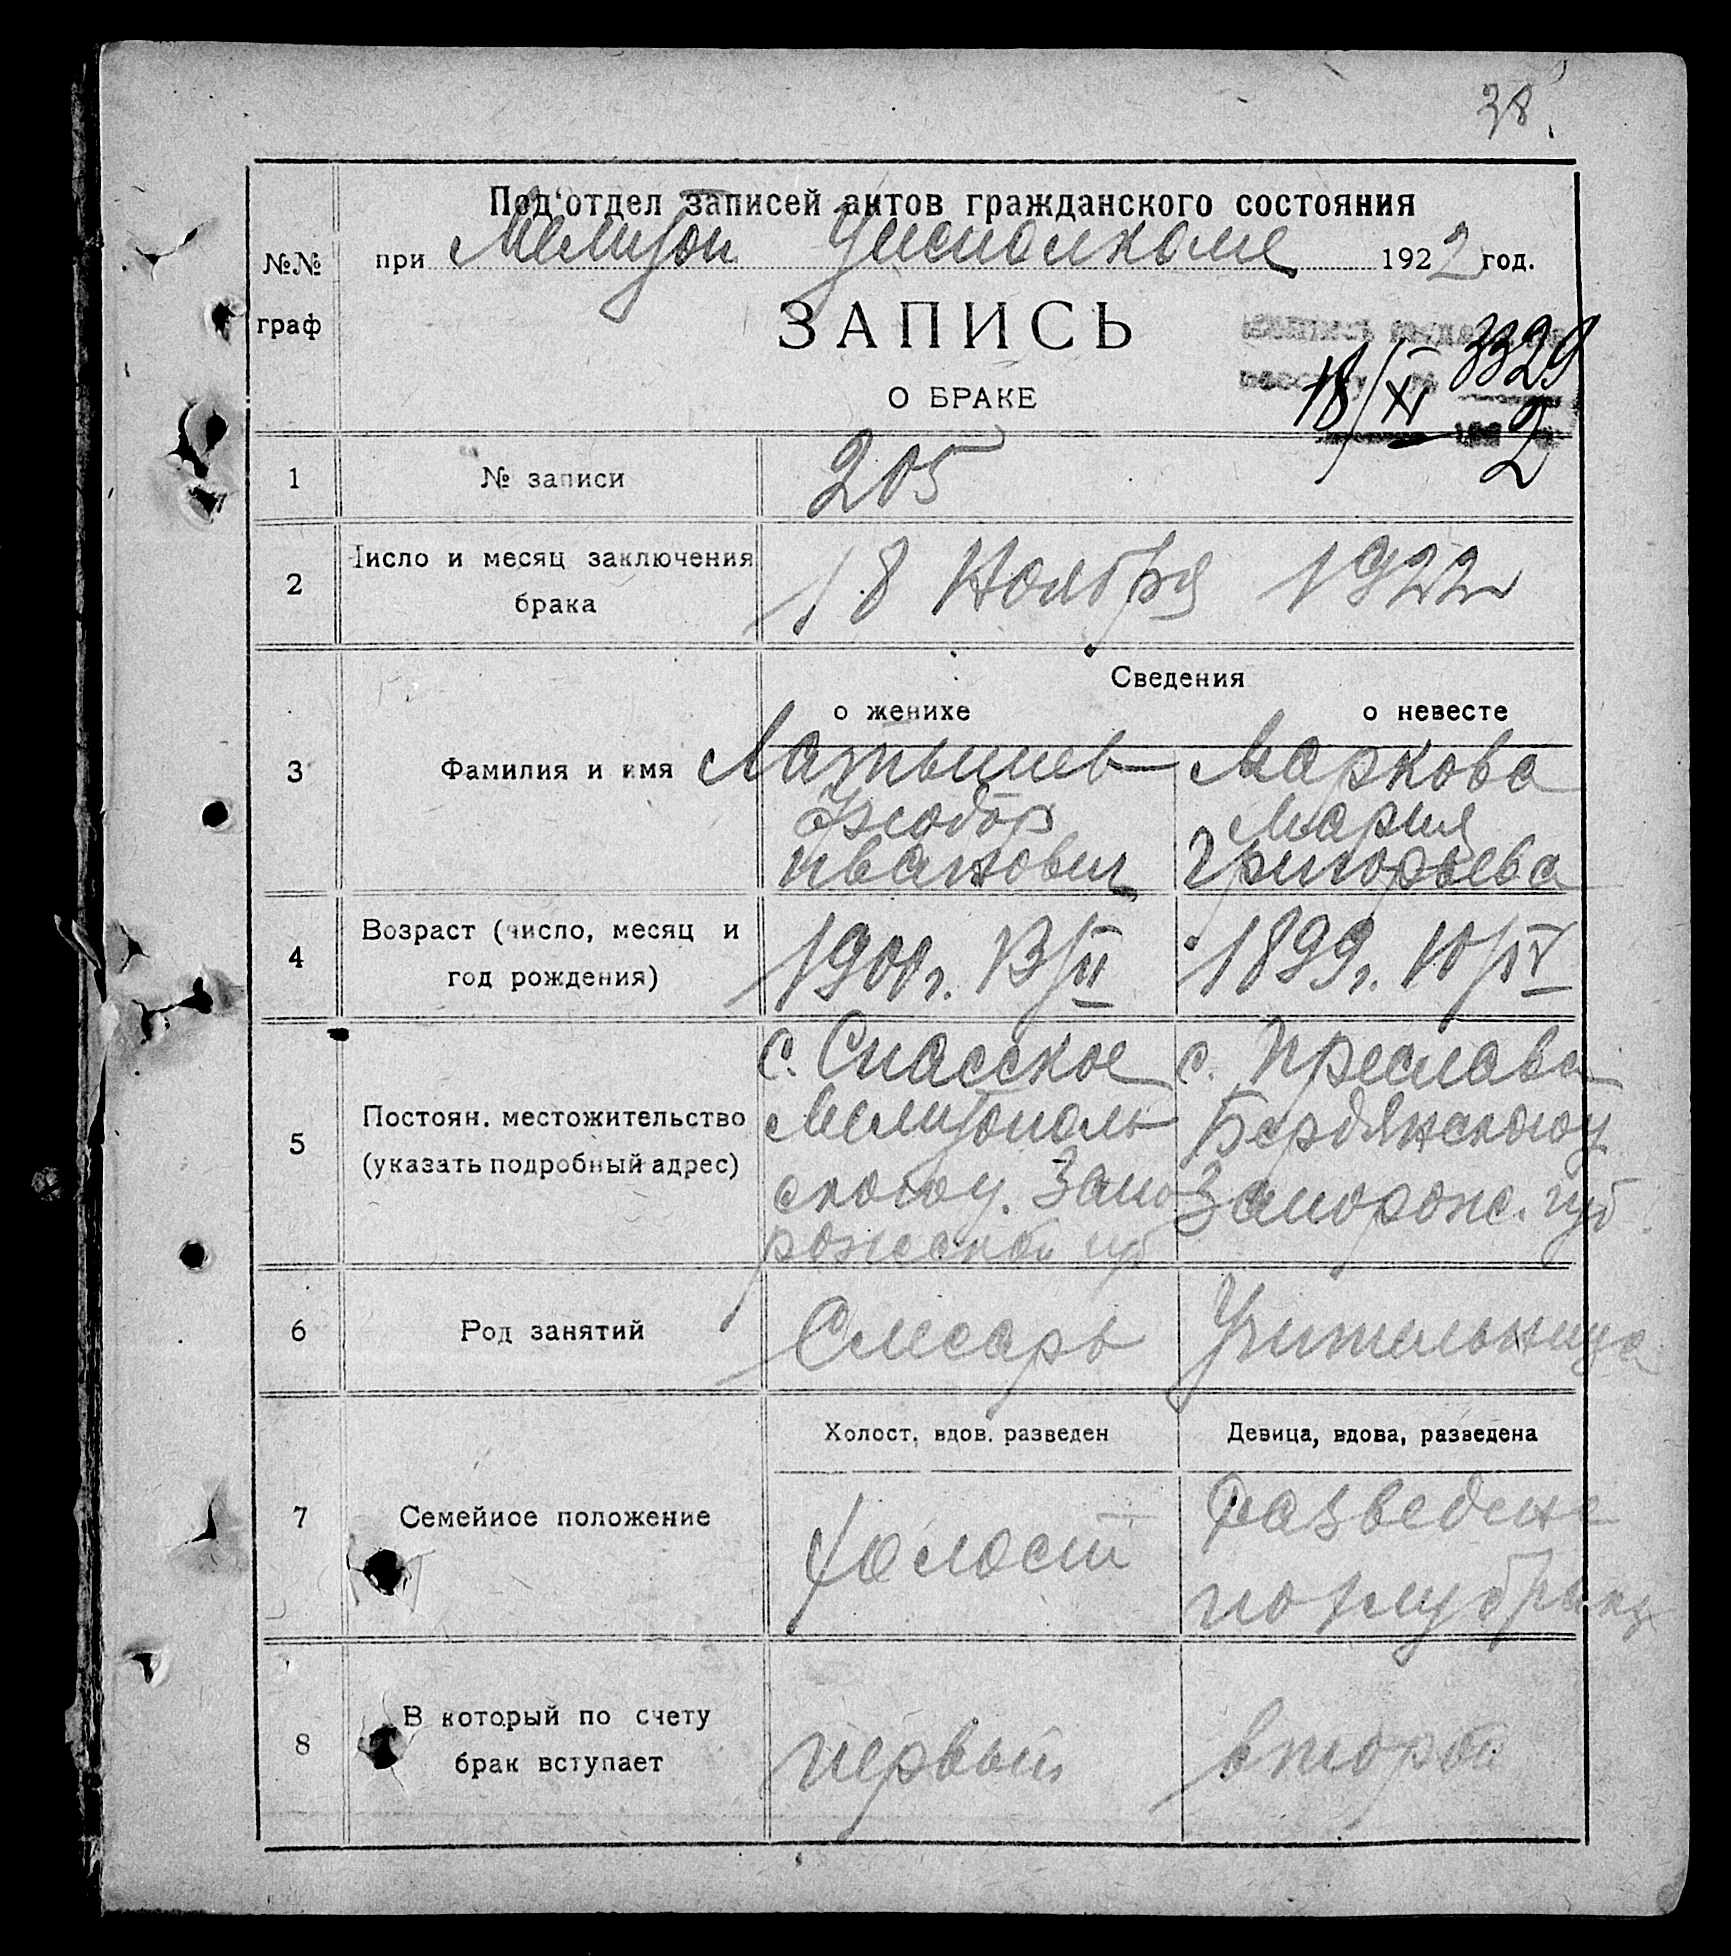 38.
Под'отдел записей актов гражданского состояния
№№
при Мелитоп Уисполкоме 1922 год.
граф
ЗАПИСЬ
3329
18/XI 2
О БРАКЕ
1 № записи 205
2 Число и месяц заключения брака 18 Ноября 1922
Сведения
о женихе о невесте
3 Фамилия и имя Латышев Маркова
Феодор Мария
Иванович Григорьева
4 Возраст (число, месяц и
год рождения)
1900г. 13/II 1899г. 10/IV
с. Спасское с. Преслава
5 Постоян. местожительство
(указать подробный адрес)
Мелитополь Бердянского у
ского у. Запо Запорожс. губ
рожской губ
6 Род занятий Слесарь Учительница
Холост, вдов. разведен Девица, вдова, разведена
7 Семейное положение Холост Разведена
8 В который по счету
брак вступает
первый второй